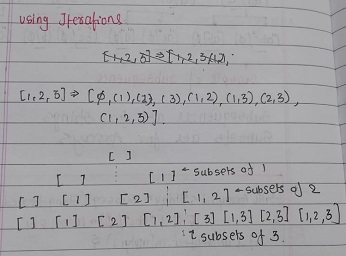 using Iterations
[1,2,3] ⇒ [1,2,3
[1,2,3] ⇒ [∅,(1),(2),(3),(1,2),(1,3),(2,3),
(1,2,3)]
[ ]
[ ] [1] ← Subsets of 1
[ ] [1] [2] [1,2] ← subsets of 2
[ ] [1] [2] [1,2] [3] [1,3] [2,3] [1,2,3]
subsets of 3.